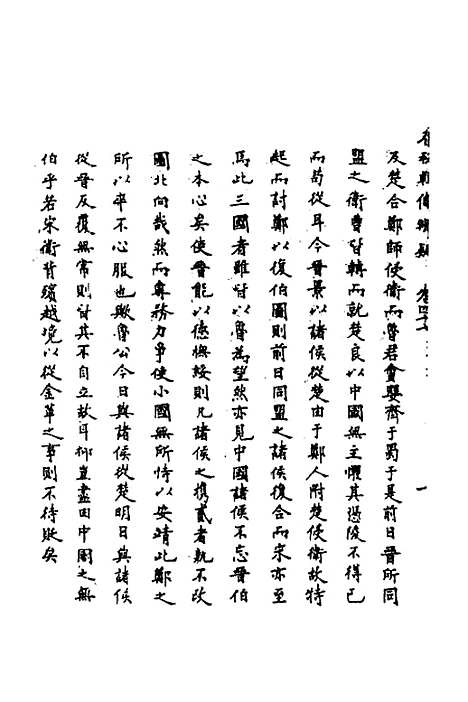 及楚合鄭師侵衛而魯君會嬰齊于蜀于是前日晉所同
盟之衛曹皆轉而就楚良以中國無主懼其憑陵不得已
而苟從耳今晉景以諸侯從楚由于鄭人附楚侵衛故特
起而討鄭以復伯圖則前日同盟之諸侯復合而宋亦至
焉此三國者雖皆以魯為望然亦見中國諸侯不忘晉伯
之本心矣使晉能以德撫綏則凡諸侯之攜貳者孰不改
圖北向哉然而專務力爭使小國無所恃以安靖此鄭之
所以卒不心服也歟魯公今日與諸侯從楚明日與諸侯
從晉反覆無常則討其不自立故耳抑直盡由中國之無
伯乎若宋衛背殯越境以從金革之事則不待貶矣